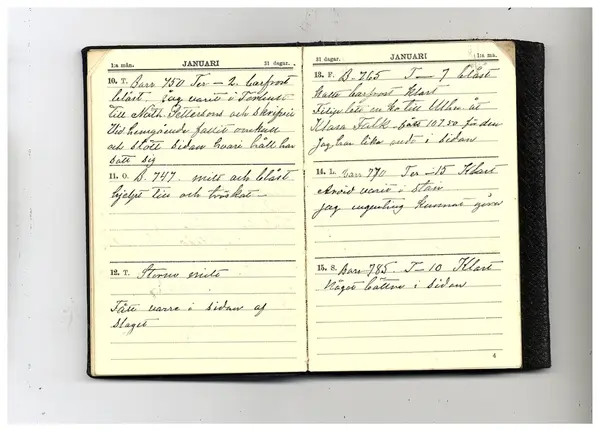 1:a mån. JANUARI 31 dagar.
10. T. Barr 750 Ter — 2. barfrost
blåst. Jag varit i
till Math. Pettersons och
Vid hemgående fallit omkull
och stött sidan svårt håll har
satt sig
11. O. B. 747. mild och blåst
hjelpt till och tröskat —
12. T. Storm mild
Fått värre i sidan af
slaget
31 dagar. JANUARI 1:a mån.
13. F. B. 765 T — 7 blåst
barfrost Klart
till
Klara Falk 107.80 för den
Jag har lika ondt i sidan
14. L. Barr 770 Ter — 15 Klart
Arvid varit i stan
jag ingenting kunnat göra
15. S. Barr 785. T — 10 Klart
Något bättre i sidan
4